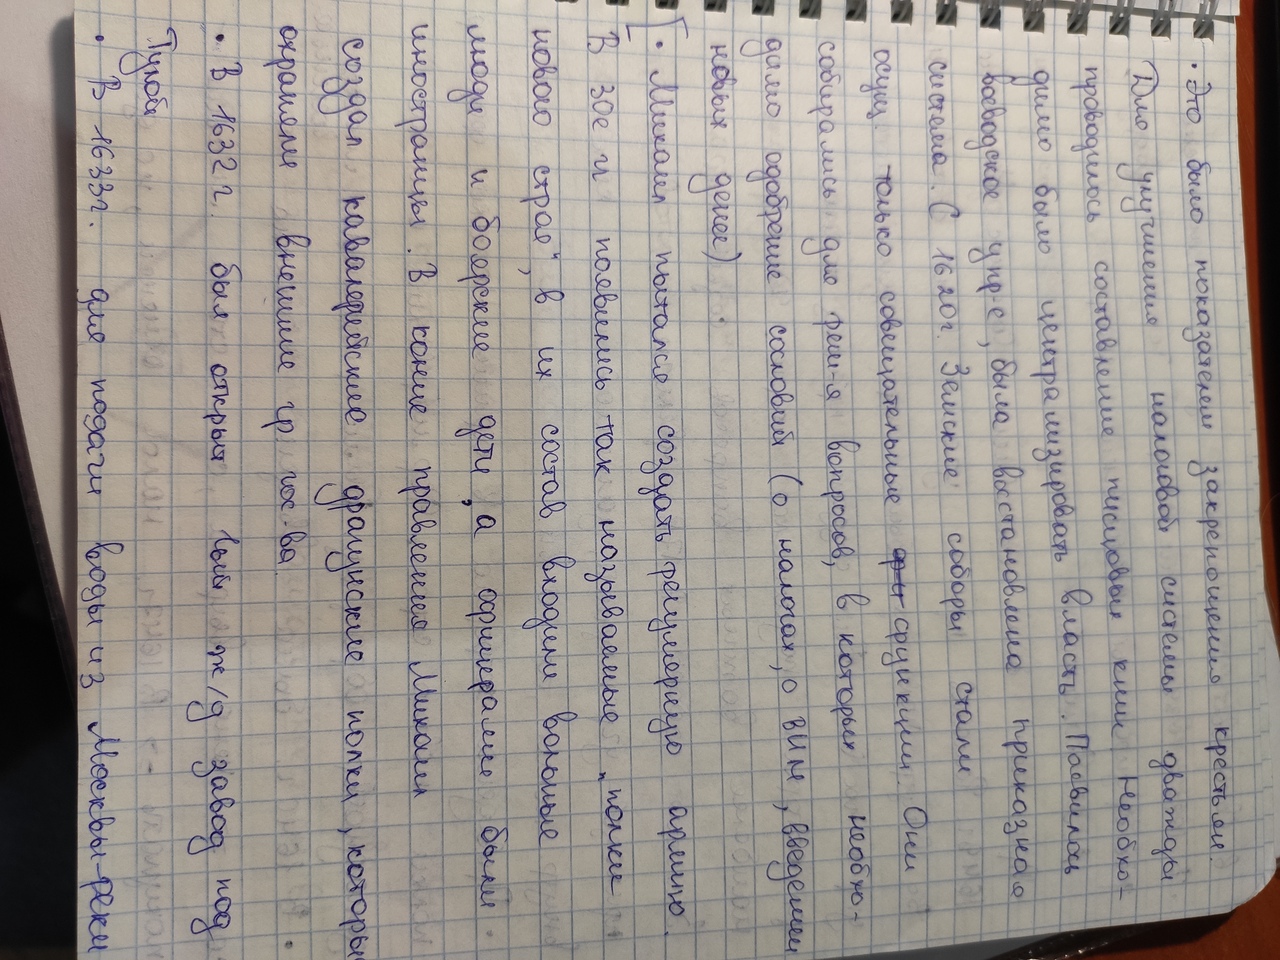 · Это было показателем закрепощения крестьян.
Для улучшения налоговой системы дважды
проводилось составление писцовых книг Необхо-
димо было централизировать власть. Появилось
воеводское упр-е, была восстановлена приказная
система. С 1620г. Земские соборы стали
осущ. только совещательные функции. Они
собирались для реш-я вопросов, в которых необхо-
димо одобрение сословий (о налогах, о ВИМ, введении
новых денег)
[· Михаил пытался создать регулярную армию.
В 30е гг появились так называемые „полки
нового строя", в их состав входили вольные
люди и боярские дети, а офицерами были
иностранцы. В конце правления Михаил
создал кавалерийские драгунские полки, которы
охраняли внешние гр. гос-ва.
· В 1632 г. был открыт 1ый ж/д завод под
Тулой
· В 1633г. для подачи воды из Москвы-реки